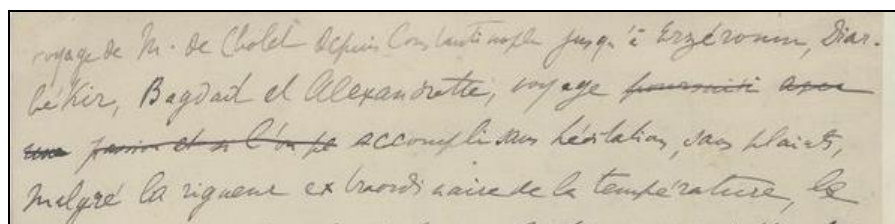 voyage de M. de Cholet depuis Constantinople jusqu'à Erzéroum, Diar-
békir, Bagdad et Alexandrette, voyage poursuivi avec
une passion et si l'on pe accompli sans hésitation, sans plainte,
malgré la rigueur extraordinaire de la température, le